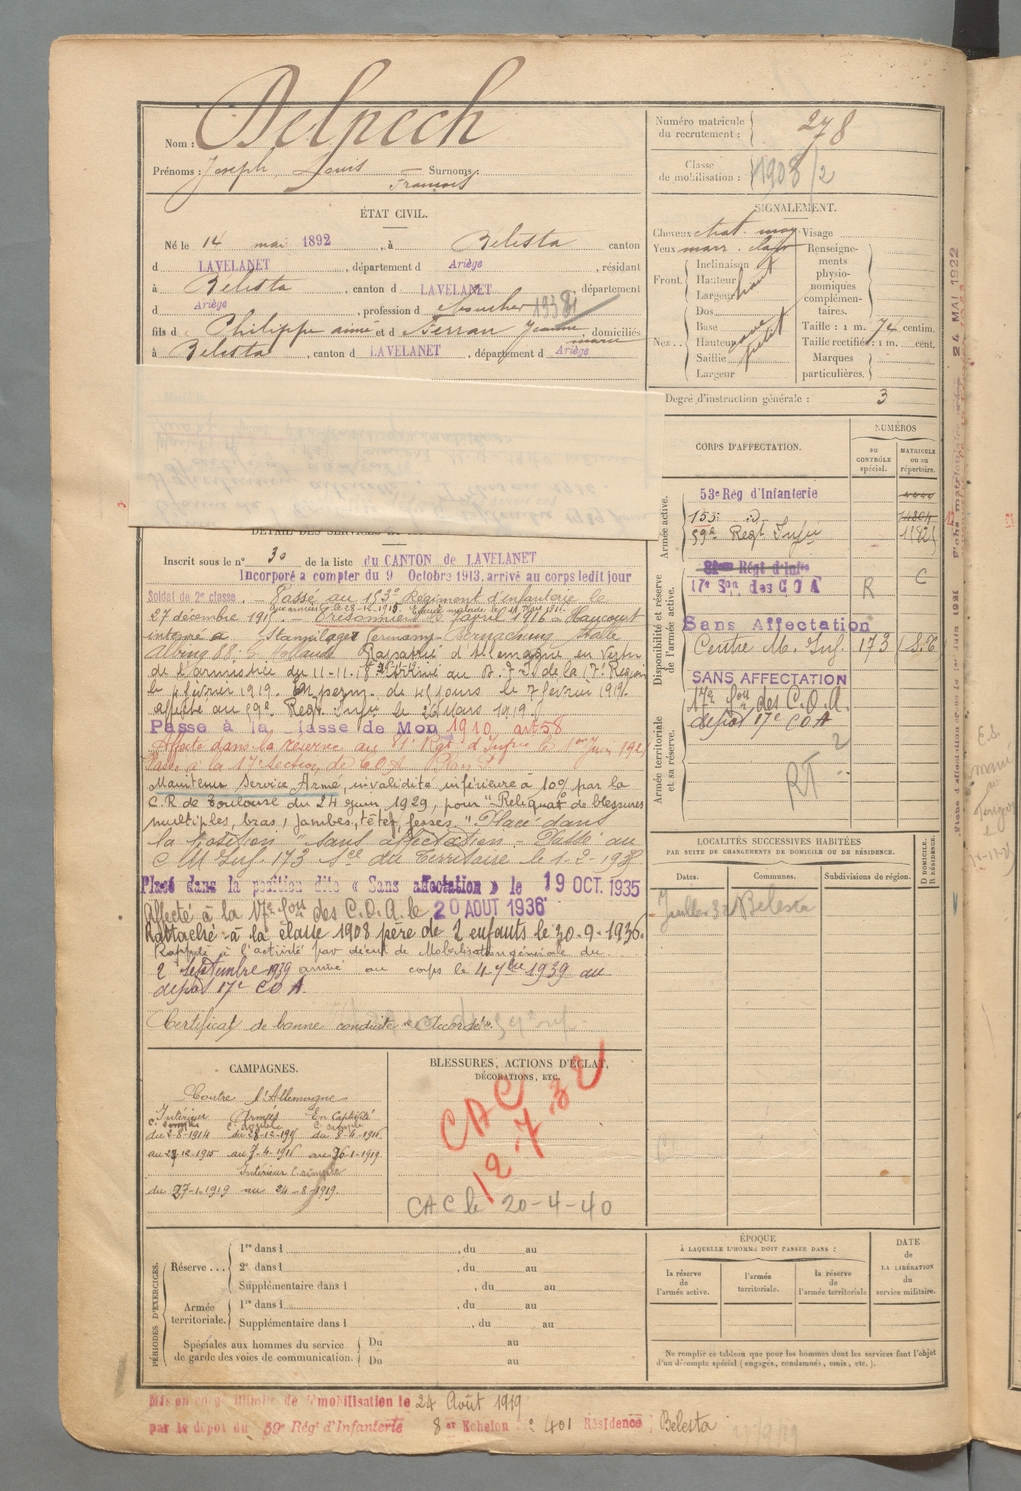 Nom : Delpech
Prénoms : Joseph, Louis Surnoms :
François
Numéro matricule du recrutement : 278
Classe de mobilisation : 1908/2
ÉTAT CIVIL.
Né le 14 mai 1892, à Belesta canton
d LAVELANET, département d Ariège, résidant
à Belesta, canton d LAVELANET, département
d Ariège, profession d boucher
fils d Philippe aimé et d Ferran Jeanne marie, domiciliés
à Belesta, canton d LAVELANET, département d Ariège
SIGNALEMENT.
Cheveux chat. moy Visage
Yeux marr. clair Renseignements physionomiques complémentaires.
Front. Inclinaison
Hauteur haut
Largeur
Nez. Dos
Base
Hauteur
Saillie petit
Largeur
Taille : 1 m. 74 centim.
Taille rectifiée : 1 m. cent.
Marques particulières.
Degré d'instruction générale : 3
CORPS D'AFFECTATION.
NUMÉROS
AU CONTRÔLE spécial.
MATRICULE OU AU répertoire.
Armée active.
53e Rég d'Infanterie
153e
59e Regt Infie
Disponibilité et réserve de l'armée active.
17e Son des COA R C
Sans Affectation
Centre M. Inf. 173
SANS AFFECTATION
Armée territoriale et sa réserve.
17e Son des C.O.A.
depot 17e COA
RT
DÉTAIL DES SERVICES
Inscrit sous le n° 30 de la liste du CANTON de LAVELANET
Incorporé a compter du 9 Octobre 1913, arrivé au corps ledit jour
Soldat de 2e classe. Passé au 153e Régiment d'infanterie le
27 décembre 1915. Prisonnier le 7 avril 1916 Haucourt
interné a Stammlager
Rapatrié d'Allemagne en vertu
de l'armistice du 11-11-18 Arrivé au de la 17e Région
le 1 février 1919. En perm. de 45 jours le 7 février 1919
affecté au 59e Regt Infie le 26 Mars 1919
Passe à la classe de Mon 1910 art 58
Affecté dans la réserve au 81e Regt d'Infie le 1er Juin
Passé à la 17e Section de COA
Maintenu Service Armé, invalidité inférieure à 10% par la
C.R de Toulouse du 24 Juin 1929, pour "Reliquat de blessures
multiples, bras, jambes, tête, fesses." Placé dans
la position "sans affectation". Passé au
C M Inf. 173 Sce du Territoire le 1-2-
Placé dans la position dite « Sans affectation » le 19 OCT. 1935
Affecté à la 17e Son des C.O.A. le 20 AOUT 1936
Rattaché à la classe 1908 père de 2 enfants le 30-9-1936.
Rappelé à l'activité par décret de Mobilisation générale du
2 Septembre 1939 arrivé au corps le 4 7bre 1939 au
depot 17e COA.
Certificat de bonne conduite "Accordé".
LOCALITÉS SUCCESSIVES HABITÉES
PAR SUITE DE CHANGEMENTS DE DOMICILE OU DE RÉSIDENCE.
Dates. Communes. Subdivisions de région. D DOMICILE. R RÉSIDENCE.
Juillet 32 Belesta
CAMPAGNES.
Contre l'Allemagne
Intérieur Armées En Captivité
C. simple C. double C. simple
du 2-8-1914 du 28-12-1915 du 8-4-1916
au 27-12-1915 au 7-4-1916 au 26-1-1919
Intérieur C. simple
du 27-1-1919 au 24-8-1919.
BLESSURES, ACTIONS D'ÉCLAT,
DÉCORATIONS, ETC.
CAC
12 7 32
CAC le 20-4-40
PÉRIODES D'EXERCICES.
Réserve ... 1re dans l , du au
2e dans l , du au
Supplémentaire dans l , du au
Armée territoriale. 1re dans l , du au
Supplémentaire dans l , du au
Spéciales aux hommes du service de garde des voies de communication. Du au
Du au
ÉPOQUE
À LAQUELLE L'HOMME DOIT PASSER DANS :
la réserve de l'armée active.
l'armée territoriale.
la réserve de l'armée territoriale
DATE de LA LIBÉRATION du service militaire.
Ne remplir ce tableau que pour les hommes dont les services font l'objet
d'un décompte spécial (engagés, condamnés, omis, etc.).
Mis en congé illimité de démobilisation le 24 Août 1919
par le dépôt du 59e Rég' d'Infanterie 8e Echelon n° 401 Résidence Belesta